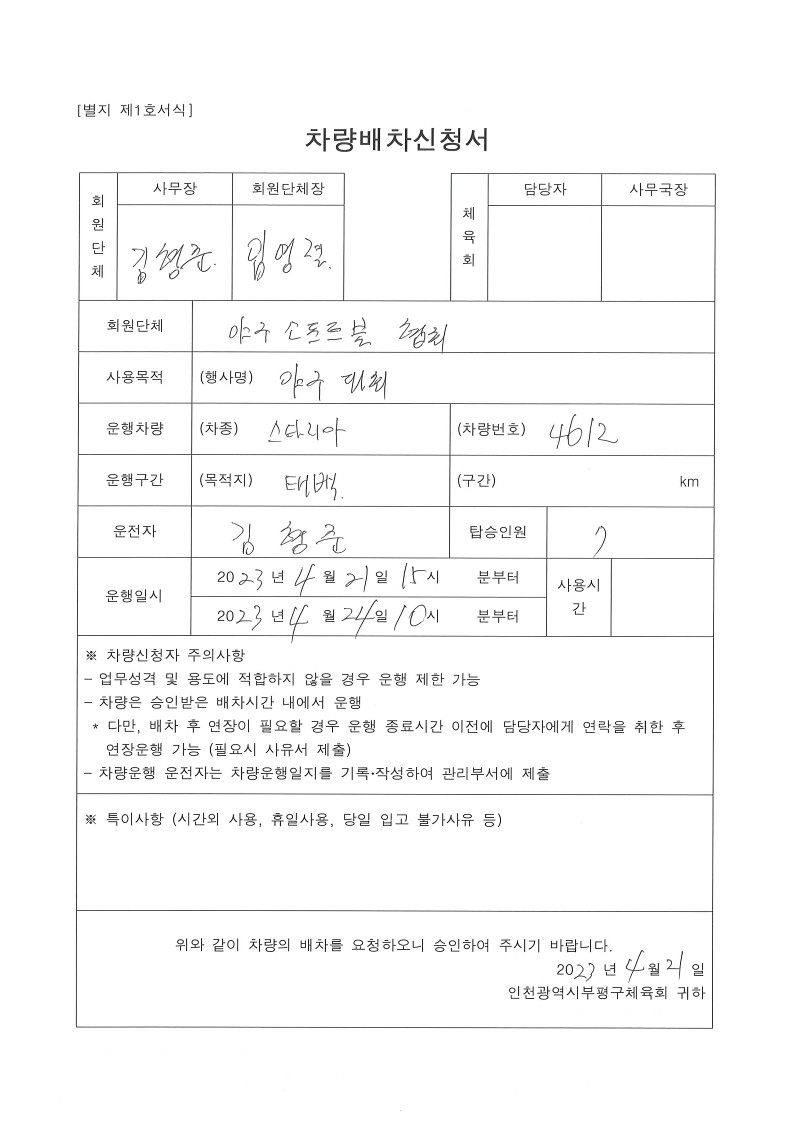 [별지 제1호서식]
차량배차신청서
회원단체 사무장 회원단체장 체육회 담당자 사무국장
김형준. 임영렬.
회원단체 야구 소프트볼 협회
사용목적 (행사명) 야구 대회
운행차량 (차종) 스타리아 (차량번호) 4612
운행구간 (목적지) 태백. (구간) km
운전자 김 형 준 탑승인원 7
운행일시 2023년 4월 21일 15시 분부터 사용시간
2023년 4월 24일 10시 분부터
※ 차량신청자 주의사항
- 업무성격 및 용도에 적합하지 않을 경우 운행 제한 가능
- 차량은 승인받은 배차시간 내에서 운행
* 다만, 배차 후 연장이 필요할 경우 운행 종료시간 이전에 담당자에게 연락을 취한 후
연장운행 가능 (필요시 사유서 제출)
- 차량운행 운전자는 차량운행일지를 기록·작성하여 관리부서에 제출
※ 특이사항 (시간외 사용, 휴일사용, 당일 입고 불가사유 등)
위와 같이 차량의 배차를 요청하오니 승인하여 주시기 바랍니다.
2023년 4월 21일
인천광역시부평구체육회 귀하